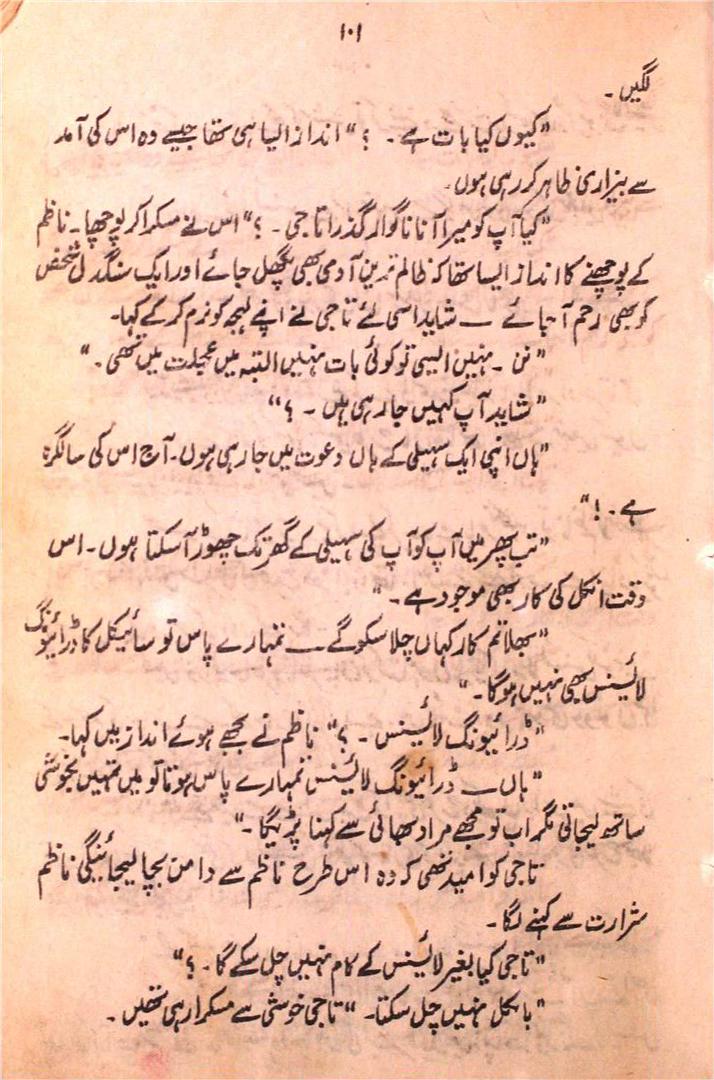 ۱۰۱
لگیں۔
”کیوں کیا بات ہے۔ ؟“ انداز ایسا ہی تھا جیسے وہ اس کی آمد
سے بیزاری ظاہر کر رہی ہوں۔
”کیا آپ کو میرا آنا ناگوار گذرا تاجی۔ ؟“ اس نے مسکرا کر پوچھا۔ ناظم
کے پوچھنے کا انداز ایسا تھا کہ ظالم ترین آدمی بھی پگھل جائے اور ایک سنگدل شخص
کو بھی رحم آ جائے ـــ شاید اسی لئے تاجی نے اپنے لہجہ کو نرم کر کے کہا۔
”نن ۔ نہیں ایسی تو کوئی بات نہیں البتہ میں عجلت میں تھی۔“
”شاید آپ کہیں جا رہی ہیں ۔ ؟“
”ہاں اپنی ایک سہیلی کے ہاں دعوت میں جا رہی ہوں۔ آج اس کی سالگرہ
ہے۔ !“
”تب پھر میں آپ کو آپ کی سہیلی کے گھر تک چھوڑ آ سکتا ہوں۔ اس
وقت انکل کی کار بھی موجود ہے۔“
”بھلا تم کار کہاں چلا سکو گے ـــ تمہارے پاس تو سائیکل کا ڈرائیونگ
لائیسنس بھی نہیں ہو گا۔“
”ڈرائیونگ لائیسنس ۔ ؟“ ناظم نے بجھے ہوئے انداز میں کہا۔
”ہاں ـــ ڈرائیونگ لائیسنس تمہارے پاس ہوتا تو میں تمہیں بخوشی
ساتھ لیجاتی مگر اب تو مجھے مراد بھائی سے کہنا پڑیگا۔“
تاجی کو امید تھی کہ وہ اس طرح ناظم سے دامن بچا لیجائینگی ناظم
شرارت سے کہنے لگا۔
”تاجی کیا بغیر لائیسنس کے کام نہیں چل سکے گا۔ ؟“
”بالکل نہیں چل سکتا۔“ تاجی خوشی سے مسکرا رہی تھیں۔